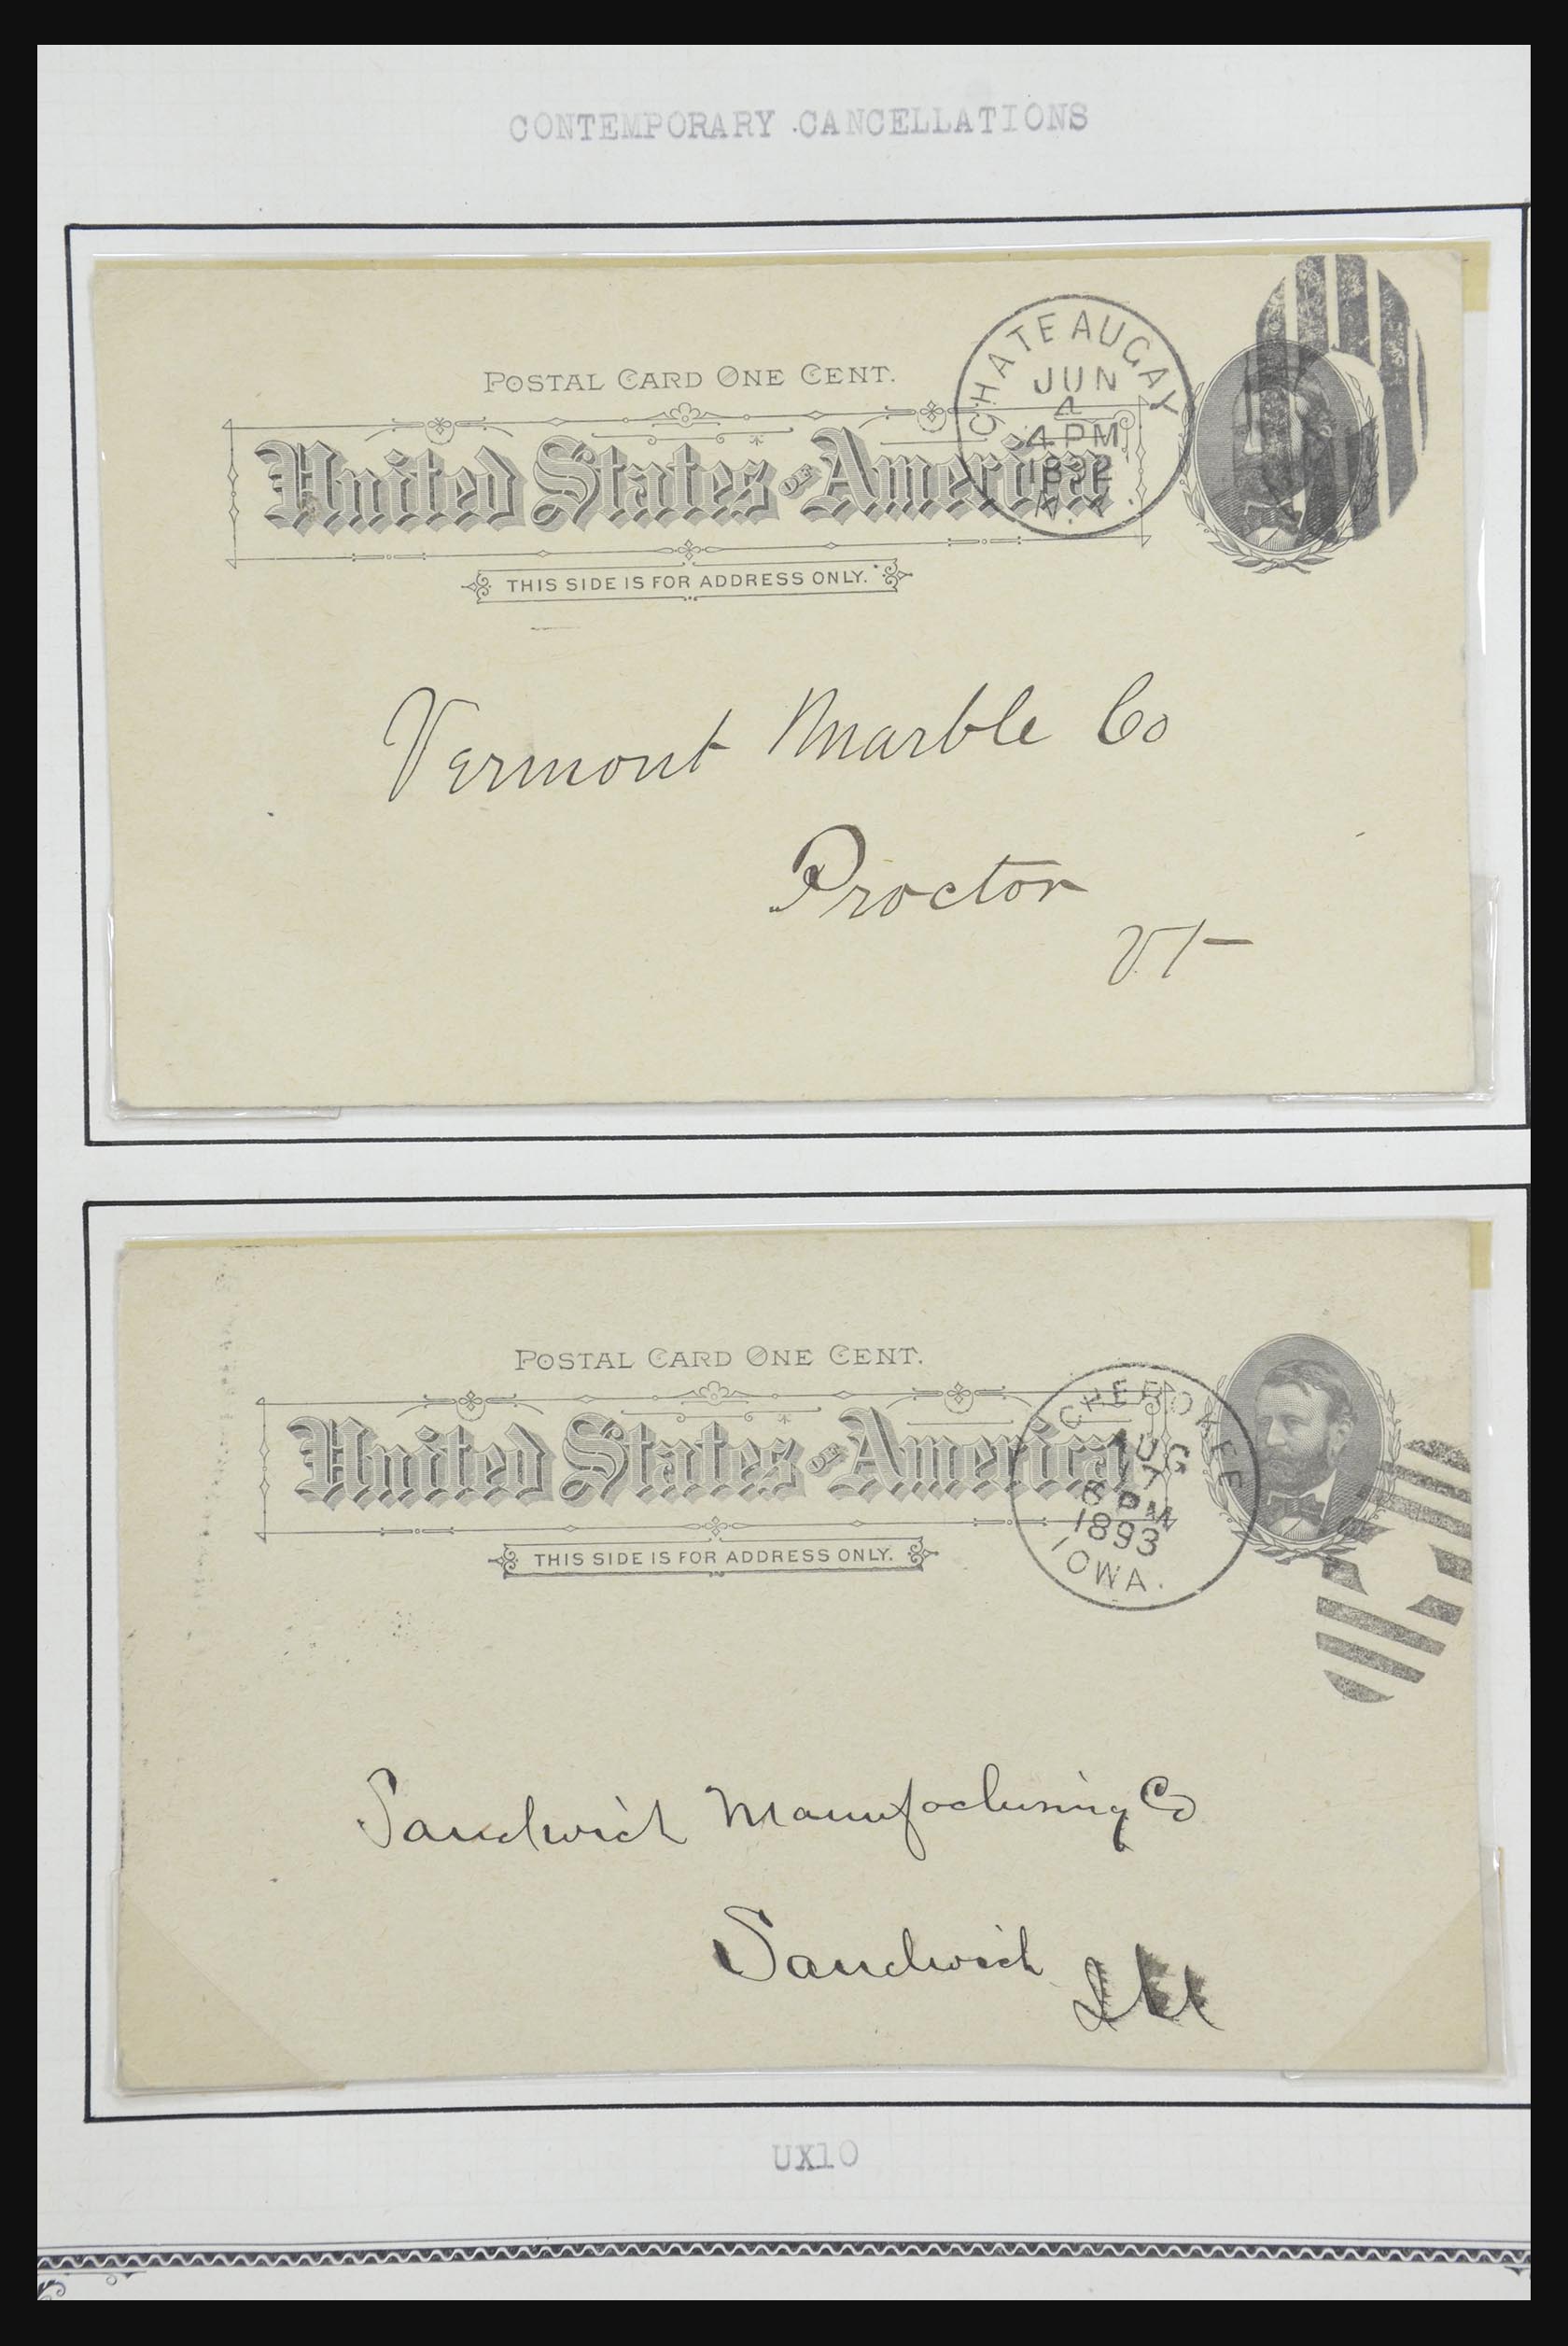 CONTEMPORARY CANCELLATIONS
POSTAL CARD ONE CENT.
CHATEAUGAY
JUN
4
4 PM
N.Y.
United States OF America
THIS SIDE IS FOR ADDRESS ONLY.
Vermont Marble Co
Proctor
Vt
POSTAL CARD ONE CENT.
CHEROKEE
AUG
7
6 PM
1893
IOWA.
United States OF America
THIS SIDE IS FOR ADDRESS ONLY.
Sandwich Manufacturing Co
Sandwich
Ill
UX10